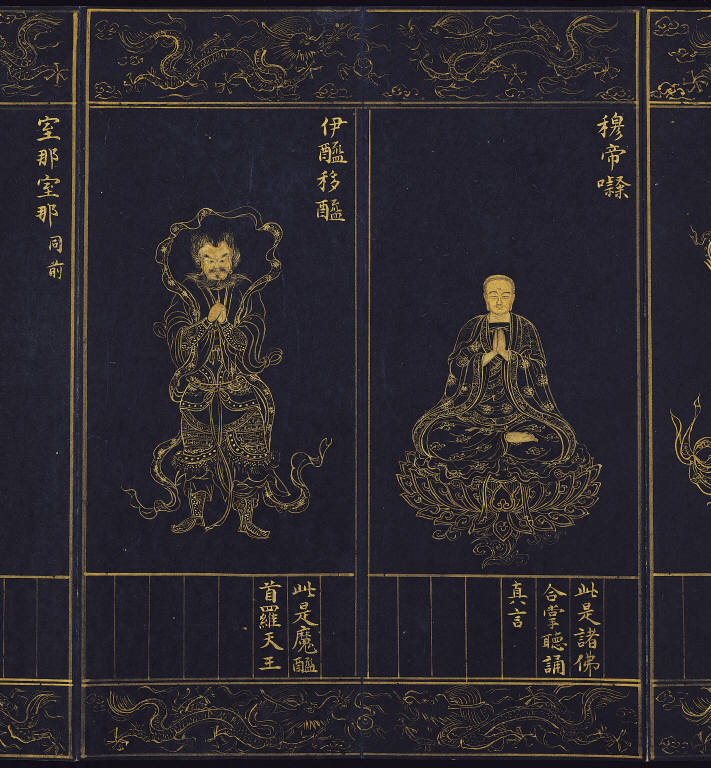 穆帝㘑
此是諸佛
合掌聽誦
真言
伊醯移醯
此是魔醯
首羅天王
室那室那 同前